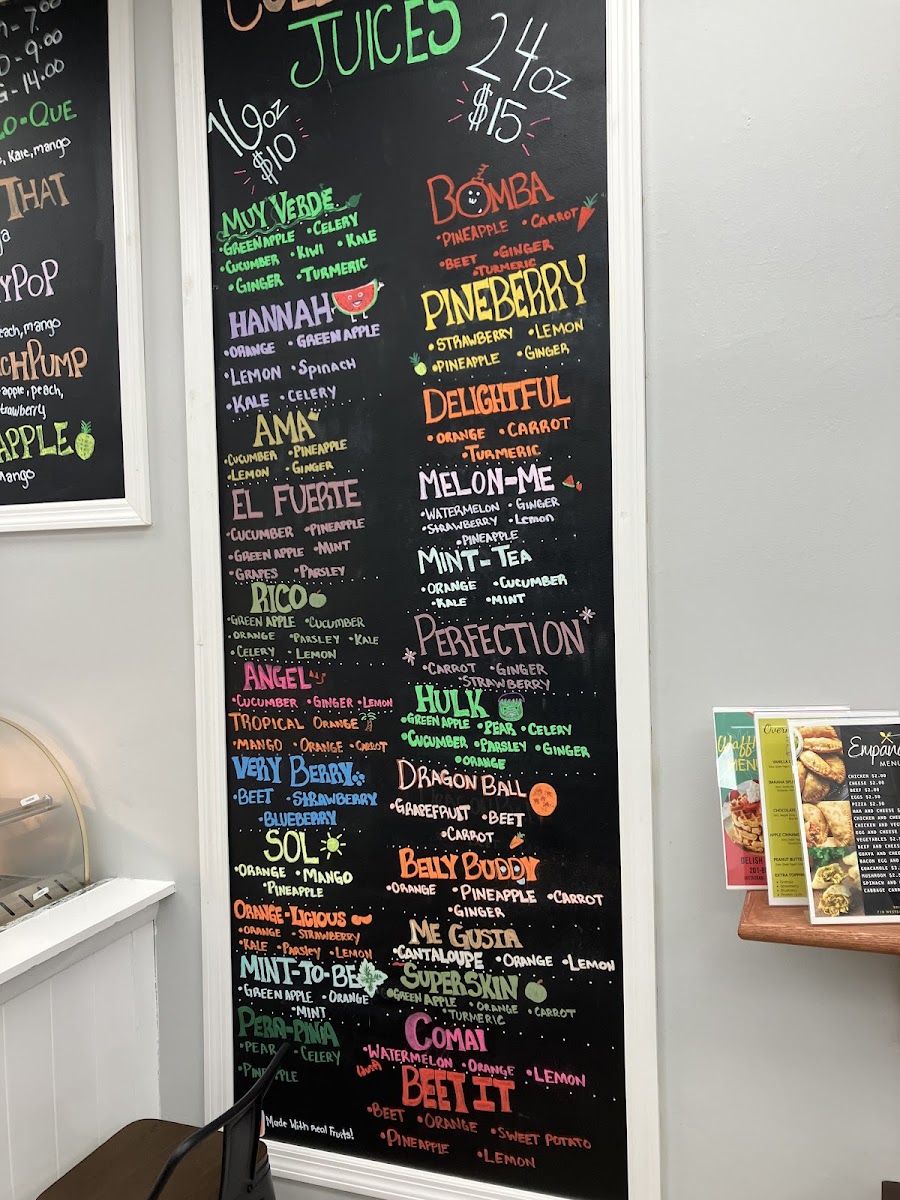 - 7.00
- 9.00
- 14.00
O-QUE
, Kale, mango
THAT
YPOP
each, mango
CHPUMP
apple, peach,
trawberry
APPLE
mango
JUICES
16oz
$10
24oz
$15
MUY VERDE
•GREEN APPLE •CELERY
•CUCUMBER •KIWI •KALE
•GINGER •TURMERIC
HANNAH
•ORANGE •GREEN APPLE
•LEMON •SPINACH
•KALE •CELERY
AMA
•CUCUMBER •PINEAPPLE
•LEMON •GINGER
EL FUERTE
•CUCUMBER •PINEAPPLE
•GREEN APPLE •MINT
•GRAPES •PARSLEY
RICO
•GREEN APPLE •CUCUMBER
•ORANGE •PARSLEY •KALE
•CELERY •LEMON
ANGEL
•CUCUMBER •GINGER •LEMON
TROPICAL ORANGE
•MANGO •ORANGE •CARROT
VERY BERRY
•BEET •STRAWBERRY
•BLUEBERRY
SOL
•ORANGE •MANGO
•PINEAPPLE
ORANGE-LICIOUS
•ORANGE •STRAWBERRY
•KALE •PARSLEY •LEMON
MINT-TO-BE
•GREEN APPLE •ORANGE
•MINT
PERA-PINA
•PEAR •CELERY
Made With real Fruits!
BOMBA
•PINEAPPLE •CARROT
•BEET •GINGER
•TURMERIC
PINEBERRY
•STRAWBERRY •LEMON
•PINEAPPLE •GINGER
DELIGHTFUL
•ORANGE •CARROT
•TURMERIC
MELON-ME
•WATERMELON •GINGER
•STRAWBERRY •Lemon
•PINEAPPLE
MINT-TEA
•ORANGE •CUCUMBER
•KALE •MINT
PERFECTION
•CARROT •GINGER
•STRAWBERRY
HULK
•GREEN APPLE •PEAR •CELERY
•CUCUMBER •PARSLEY •GINGER
•ORANGE
DRAGON BALL
•GRAPEFRUIT •BEET
•CARROT
BELLY BUDDY
•ORANGE •PINEAPPLE •CARROT
•GINGER
ME GUSTA
•CANTALOUPE •ORANGE •LEMON
SUPERSKIN
•GREEN APPLE •ORANGE •CARROT
•TURMERIC
COMAI
•WATERMELON •ORANGE •LEMON
BEET IT
•BEET •ORANGE •SWEET POTATO
•PINEAPPLE •LEMON
MENU
DELISH
VANILLA
CHOCOLATE
PEANUT BUTTER
EXTRA TOPPIN
Empana
MENU
CHICKEN $2.00
CHEESE $2.00
BEEF $2.00
EGGS $2.50
PIZZA $2.50
HAM AND CHEESE
CHICKEN AND CHEE
CHICKEN AND VEG
EGG AND CHEESE
VEGETABLES $2.
BEEF AND CHEES
GUAVA AND CHEE
BACON EGG AND
MUSHROOM $2.
SPINACH AND C
CABBAGE CARR